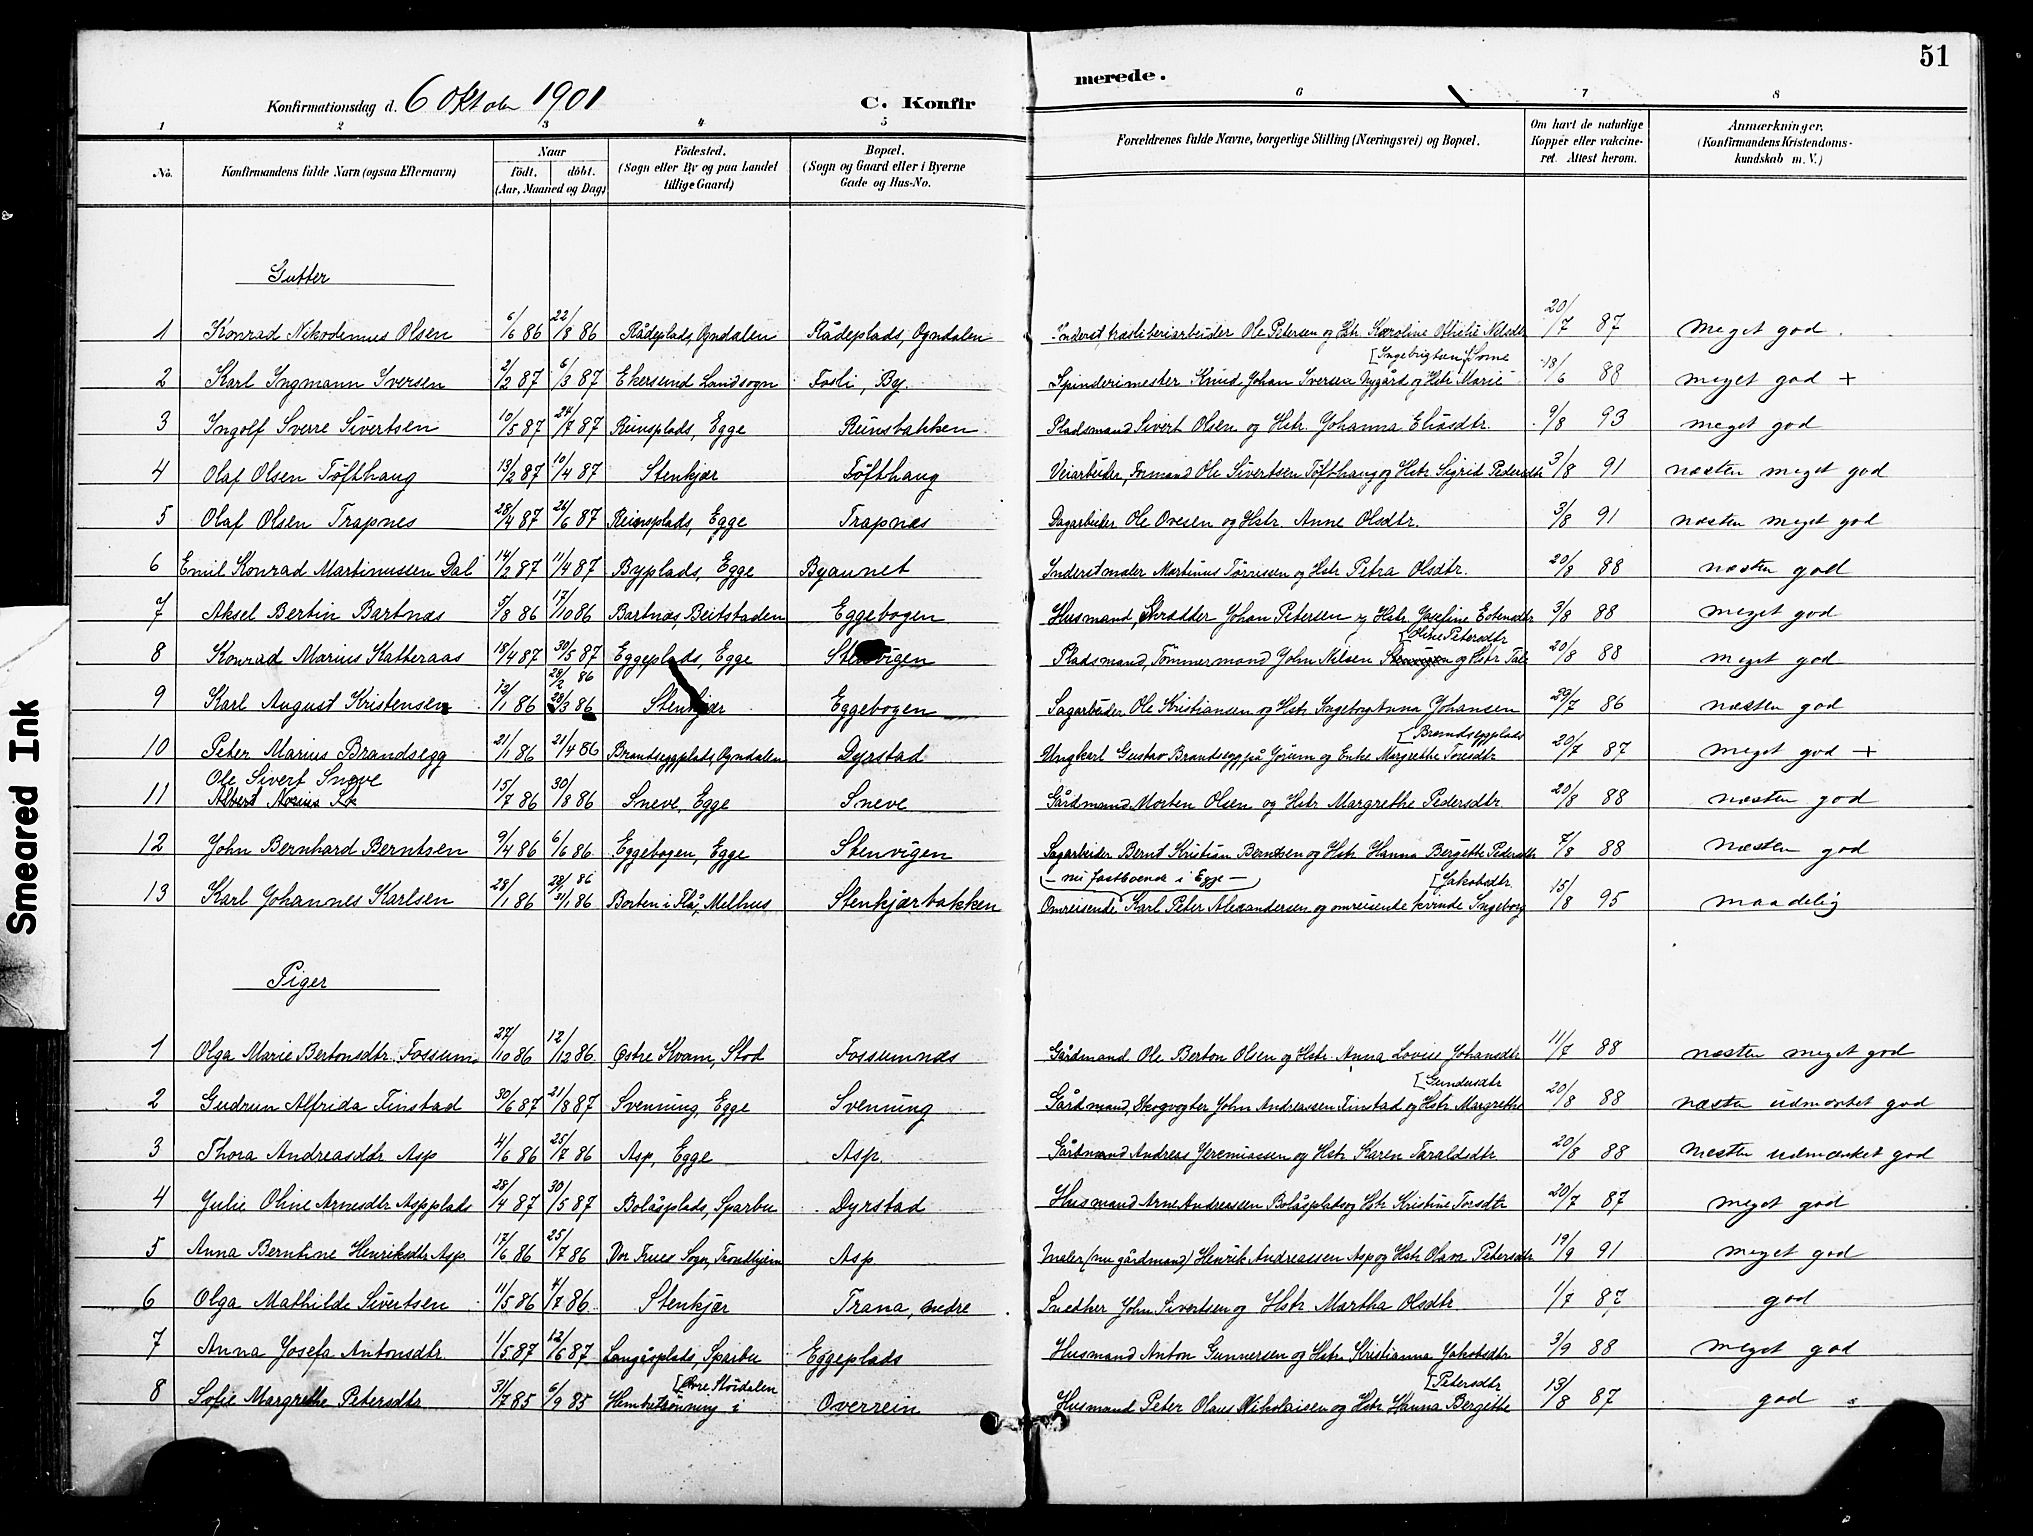 51
Konfirmationsdag d. 6 Oktober 1901 C. Konfirmerede.
1 2 3 4 5 6 7 8
No. Konfirmandens fulde Navn (ogsaa Efternavn) Naar født. døbt. (Aar, Maaned og Dag) Fødested. (Sogn eller By og paa Landet tillige Gaard) Bopæl. (Sogn og Gaard eller i Byerne Gade og Hus-No. Forældrenes fulde Navne, borgerlige Stilling (Næringsvei) og Bopæl. Om havt de naturlige Kopper eller vakcineret. Attest herom. Anmærkninger. (Konfirmandens Kristendomskundskab m. V.)
Gutter
1 Konrad Nikodemus Olsen 6/6 86 22/8 86 Rådeplads, Ogndalen Rådeplads, Ogndalen Inderst, træsliberiarbeider Ole Petersen og Hstr. Karoline Otilie Nilsdtr. 20/7 87 meget god
2 Karl Ingmann Iversen 2/2 87 6/3 87 Ekersund Landsogn Fosli, By. Spinderimester Knud Johan Iversen Nygård og Hstr. Marie [Ingebrigtsen] 18/6 88 meget god +
3 Ingolf Sverre Sivertsen 10/5 87 24/7 87 Reinsplads, Egge Reinsbakken Pladsmand Sivert Olsen og Hstr. Johanna Eliasdtr. 9/8 93 meget god
4 Olaf Olsen Tøfthaug 13/2 87 10/4 87 Stenkjær Tøfthaug Veiarbeider, Formand Ole Sivertsen Tøfthaug og Hstr. Sigrid Pedersdtr 3/8 91 næsten meget god
5 Olaf Olsen Trapnes 28/4 87 24/6 87 Reinsplads, Egge Trapnes Dagarbeider Ole Ovesen og Hstr. Anne Olsdtr. 3/8 91 næsten meget god
6 Emil Konrad Martinussen Dal 14/2 87 11/4 87 Byplads, Egge Byaunet Inderst maler Martinus Tørrissen og Hstr. Petra Olsdtr. 20/8 88 næsten god
7 Aksel Bertin Bartnæs 5/8 86 17/10 86 Bartnæs, Beitstaden Eggebogen Husmand, Skrædder Johan Petersen og Hstr. Josefine Estensdtr 3/8 88 meget god
8 Konrad Marius Katteraas 18/4 87 30/5 87 Eggeplads, Egge Stenvigen Pladsmand, Tømmermand John Nilsen Stenvigen og Hstr. [Oline Petersdtr 20/8 88 meget god
9 Karl August Kristensen 12/1 86 28/2 86 28/3 86 Stenkjær Eggebogen Sagarbeider Ole Kristiansen og Hstr. Ingeborg Anna Johansen 29/7 86 næsten god
10 Peter Marius Brandsegg 21/1 86 21/4 86 Brandseggplads, Ogndalen Dyrstad Ungkarl Gustav Brandsegg på Jørum og Enke Margrethe Toresdtr. [Brandseggplads 20/7 87 meget god +
11 Ole Sivert Sneve 15/7 86 30/8 86 Sneve, Egge Sneve Gårdmand Morten Olsen og Hstr. Margrethe Pedersdtr 20/8 88 næsten god
12 John Bernhard Berntsen 9/4 86 6/6 86 Eggebogen, Egge Stenvigen Sagarbeider Bernt Kristian Berntsen og Hstr. Hanna Bergitte Pedersdtr 7/8 88 næsten god
13 Karl Johannes Karlsen 28/1 86 31/1 86 Borten i Flå, Melhus Stenkjærbakken – nu fastboende i Egge – Omreisende Karl Peter Alexandersen og omreisende kvinde Ingeborg [Jakobsdtr. 15/8 95 maadelig
Piger
1 Olga Marie Bertonsdtr. Fossum 27/10 86 12/12 86 Østre Kvam, Stod Fossumnæs Gårdmand Ole Berton Olsen og Hstr. Anna Lovise Johansdtr 11/7 88 næsten meget god
2 Gudrun Alfrida Tinstad 30/6 87 21/8 87 Svenning, Egge Svenning Gårdmand, Skogvogter John Andreassen Tinstad og Hstr. Margrethe [Gundersdtr 20/8 88 næsten udmærket god
3 Thora Andreasdtr Asp 4/6 86 25/7 86 Asp, Egge Asp. Gårdmand Andreas Jeremiassen og Hstr. Karen Taraldsdtr 20/8 88 næsten udmærket god
4 Julie Oline Arnesdtr Aspplads 28/4 87 30/5 87 Bolåsplads, Sparbu Dyrstad Husmand Arne Andreassen Bolåsplads og Hstr. Kristine Torsdtr 20/7 87 meget god
5 Anna Berntine Henriksdtr. Asp 17/6 86 25/7 86 Vor Frues Sogn, Trondhjem Asp Maler (nu gårdmand) Henrik Andreassen Asp og Hstr. Olava Petersdtr 19/9 91 meget god
6 Olga Mathilde Sivertsen 11/5 86 4/7 86 Stenkjær Trana, nedre Snedker John Sivertsen og Hstr. Martha Olsdtr. 1/7 87 god
7 Anna Josefa Antonsdtr 1/5 87 12/6 87 Langåsplads, Sparbu Eggeplads Husmand Anton Gunnersen og Hstr. Kristianna Jakobsdtr 3/9 88 meget god
8 Sofie Margrethe Petersdtr 31/7 85 6/9 85 i [Øvre Stördalen Overrein Husmand Peter Olaus Nikolaisen og Hstr. Hanna Bergitte [Petersdtr 13/8 87 god
Smeared Ink